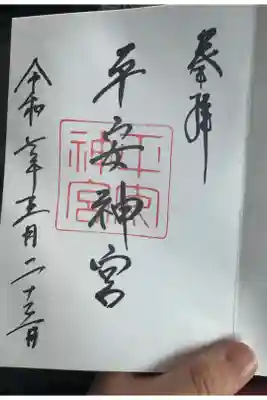 奉拝
平安神宮
平安神宮
令和六年三月二十三日